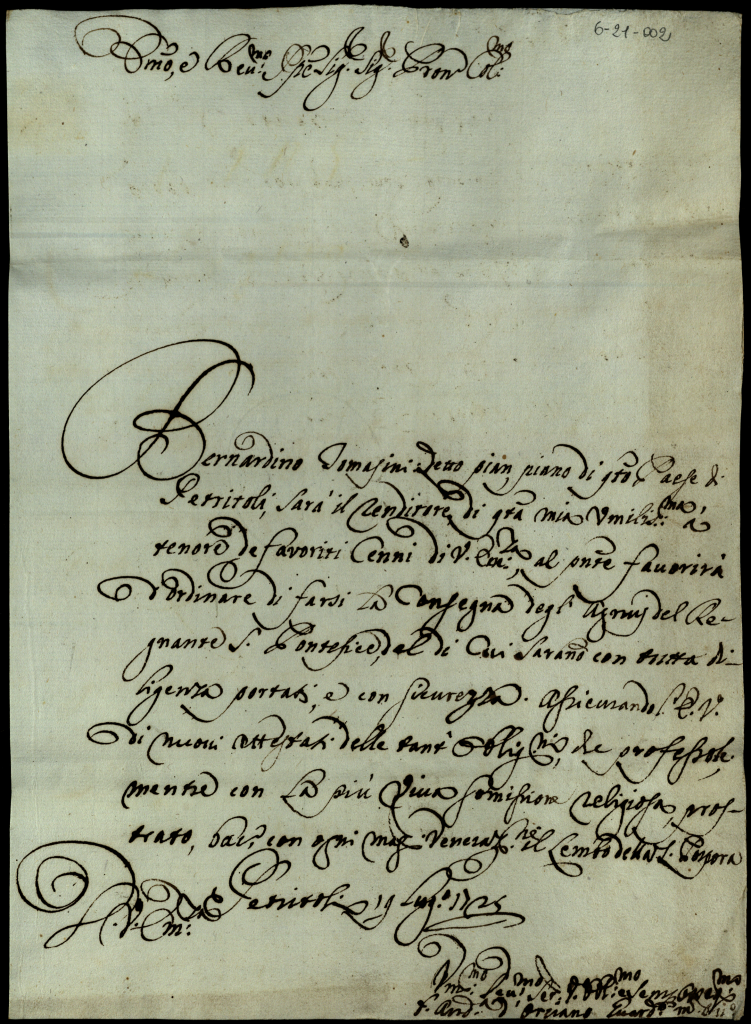 6-21-002
Emo, e Reu:mo Ppe Sig: Sig: Pron Col:mo
Bernardino Tomasini: detto pian piano di qto Paese di
Petritoli, sarà il Renditore di qta mia Vmiliss:ma, a
tenore de favoriti Cenni di V. Em:za, al pnte favorirà
d'Ordinare di farsi la Consegna degl' Agnus del Re-
gnante S. Pontefice, del di Cui sarano con tutta di-
ligenza portati, e con sicurezza. Assicurando l' E. V.
di nuovi attestati delle tant' Oblig:ni, che professole,
mentre con la più viva somissione religiosa, pros-
trato, bacio con ogni mag: Veneraz:ne il Lembo della S. Porpora
D. V. Em:za Petritoli 19 Lug:o 1725
Vm:mo Deu:mo Ser:
F. And: d'Orciano Guard: